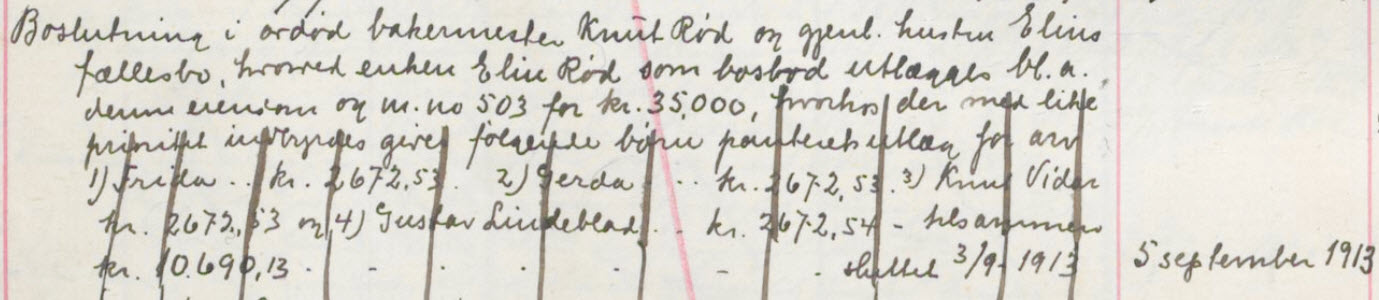 Boslutning i avdød bakermester Knut Rød og gjenl. hustru Elins
fællesbo, hvorved enken Elin Rød som boslod utlægges bl. a.
denne eiendom og m. no 503 for kr. 35,000, hvorhos der med like
prioritet indbyrdes gives følgende børn panteretsutlæg for arv
1) Frida .. kr. 2672,53. 2) Gerda .. kr. 2672,53. 3) Knut Vidar
kr. 2672,53 og 4) Gustav Lindeblad .. kr. 2672,54 - tilsammen
kr. 10.690,13 - - - - - - - sluttet 3/9 1913 5 september 1913